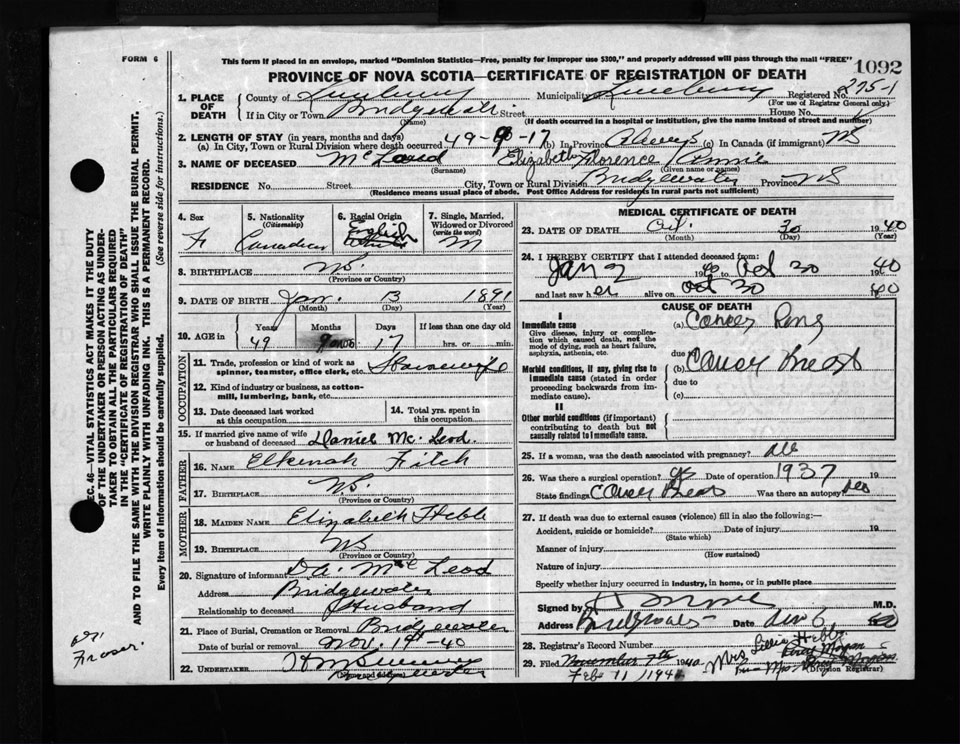 FORM 6
This form if placed in an envelope, marked "Dominion Statistics—Free, penalty for improper use $300," and properly addressed will pass through the mail "FREE"
1092
PROVINCE OF NOVA SCOTIA—CERTIFICATE OF REGISTRATION OF DEATH
1. PLACE OF DEATH
County of Lunenburg Municipality Lunenburg Registered No. 275-1
(For use of Registrar General only.)
If in City or Town Bridgewater Street House No.
(Name) (If death occurred in a hospital or institution, give the name instead of street and number)
2. LENGTH OF STAY (in years, months and days)
(a) In City, Town or Rural Division where death occurred 49-9-17 (b) In Province Always (c) In Canada (if immigrant) NS
3. NAME OF DECEASED McLeod Elizabeth Florence Annie
(Surname) (Given name or names)
RESIDENCE No. Street City, Town or Rural Division Bridgewater Province NS
(Residence means usual place of abode. Post Office Address for residents in rural parts not sufficient)
4. Sex
F
5. Nationality
(Citizenship)
Canadian
6. Racial Origin
English
7. Single, Married, Widowed or Divorced
(write the word)
M
8. BIRTHPLACE NS
(Province or Country)
9. DATE OF BIRTH Jan. 13 1891
(Month) (Day) (Year)
10. AGE in
Years Months Days If less than one day old
49 9 mos 17 hrs. or min.
OCCUPATION
11. Trade, profession or kind of work as spinner, teamster, office clerk, etc. Housewife
12. Kind of industry or business, as cotton-mill, lumbering, bank, etc.
13. Date deceased last worked at this occupation
14. Total yrs. spent in this occupation
15. If married give name of wife or husband of deceased Daniel Mc Leod.
FATHER
16. NAME Elkenah Fitch
17. BIRTHPLACE NS.
(Province or Country)
MOTHER
18. MAIDEN NAME Elizabeth Hebb
19. BIRTHPLACE NS
(Province or Country)
20. Signature of informant D.A. McLeod
Address Bridgewater
Relationship to deceased Husband
21. Place of Burial, Cremation or Removal Bridgewater
Date of burial or removal Nov. 1st - 40
22. UNDERTAKER
(Name and address)
MEDICAL CERTIFICATE OF DEATH
23. DATE OF DEATH Oct. 30 1940
(Month) (Day) (Year)
24. I HEREBY CERTIFY that I attended deceased from:
Jan 2 1940 Oct 30 1940
and last saw her alive on Oct 30 40
CAUSE OF DEATH
I
Immediate cause
Give disease, injury or complication which caused death, not the mode of dying, such as heart failure, asphyxia, asthenia, etc.
(a) Cancer Lung
due to
Morbid conditions, if any, giving rise to immediate cause (stated in order proceeding backwards from immediate cause).
(b) Cancer Breast
due to
(c)
II
Other morbid conditions (if important) contributing to death but not causally related to immediate cause.
25. If a woman, was the death associated with pregnancy? no
26. Was there a surgical operation? yes Date of operation 1937 19
State findings Cancer Breast Was there an autopsy? no
27. If death was due to external causes (violence) fill in also the following:—
Accident, suicide or homicide? Date of injury 19
(State which)
Manner of injury
(How sustained)
Nature of injury
Specify whether injury occurred in industry, in home, or in public place
Signed by M.D.
Address Bridgewater Date Nov 6 40
28. Registrar's Record Number
29. Filed November 7th 1940
Feb 11/1941
Mrs Lillie Hebb
(Division Registrar)
SEC. 46—VITAL STATISTICS ACT MAKES IT THE DUTY OF THE UNDERTAKER OR PERSON ACTING AS UNDERTAKER TO OBTAIN ALL THE PARTICULARS REQUIRED IN THE "CERTIFICATE OF REGISTRATION OF DEATH" AND TO FILE THE SAME WITH THE DIVISION REGISTRAR WHO SHALL ISSUE THE BURIAL PERMIT.
WRITE PLAINLY WITH UNFADING INK. THIS IS A PERMANENT RECORD.
Every item of information should be carefully supplied. (See reverse side for instructions.)